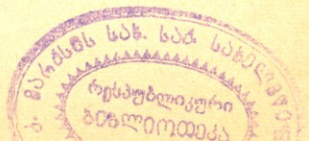 კ. მარქსის სახ. საქ. სახელმწიფ
რესპუბლიკური
ბიბლიოთეკა